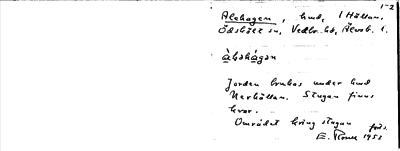 1-2
Alehagen, hmd, i Hällan,
Ödskölt sn, Vedbo hd, Älvsb. l.
àləhágən
Jorden brukas under hmd
Nerhällan. Stugan finns
kvar.
Området kring stugan
förs.
1952